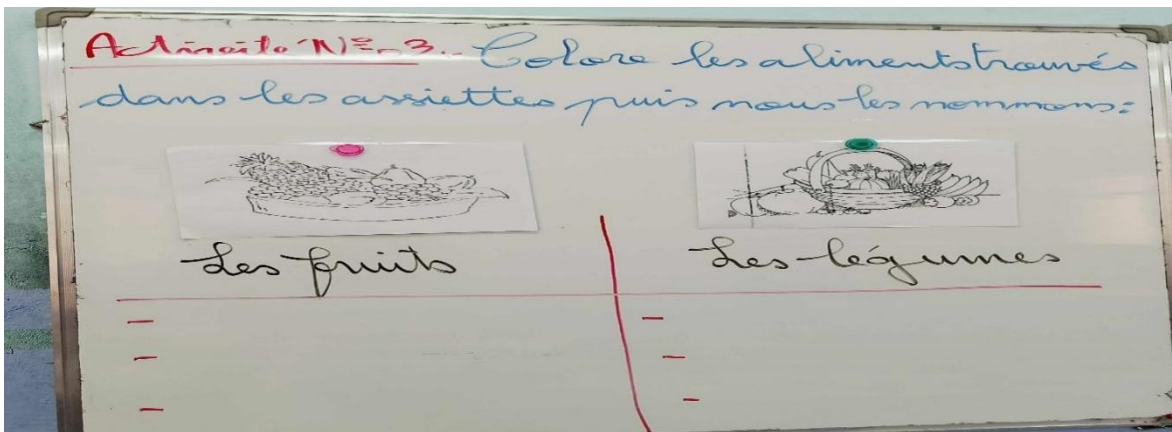 Activité N°=3. Colore les aliments trouvés
dans les assiettes puis nous les nommons:
Les fruits
Les légumes
-
-
-
-
-
-